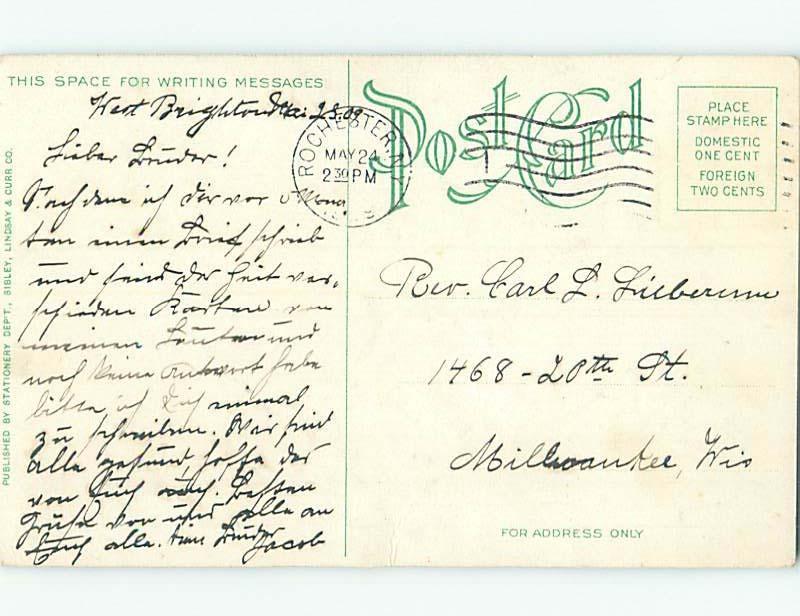 THIS SPACE FOR WRITING MESSAGES
West Brighton Mai 23.09
Lieber Bruder!
Nachdem ich Dir vor Mona
ten einen Brief schrieb
und seid der Zeit ver-
schieden Karten von
meinen Leuten und
noch keine Antwort habe
bitte ich Dich einmal
zu schreiben. Wir sind
alle gesund, hoffe das
von Euch auch. Besten
Gruß von uns alle an
Euch alle. Dein Bruder
Jacob
PUBLISHED BY STATIONERY DEP'T., SIBLEY, LINDSAY & CURR CO.
ROCHESTER, N.Y.
MAY 24
2 30 PM
Post Card
PLACE
STAMP HERE
DOMESTIC
ONE CENT
FOREIGN
TWO CENTS
Rev. Carl L.
1468-20th St.
Milwaukee, Wis
FOR ADDRESS ONLY